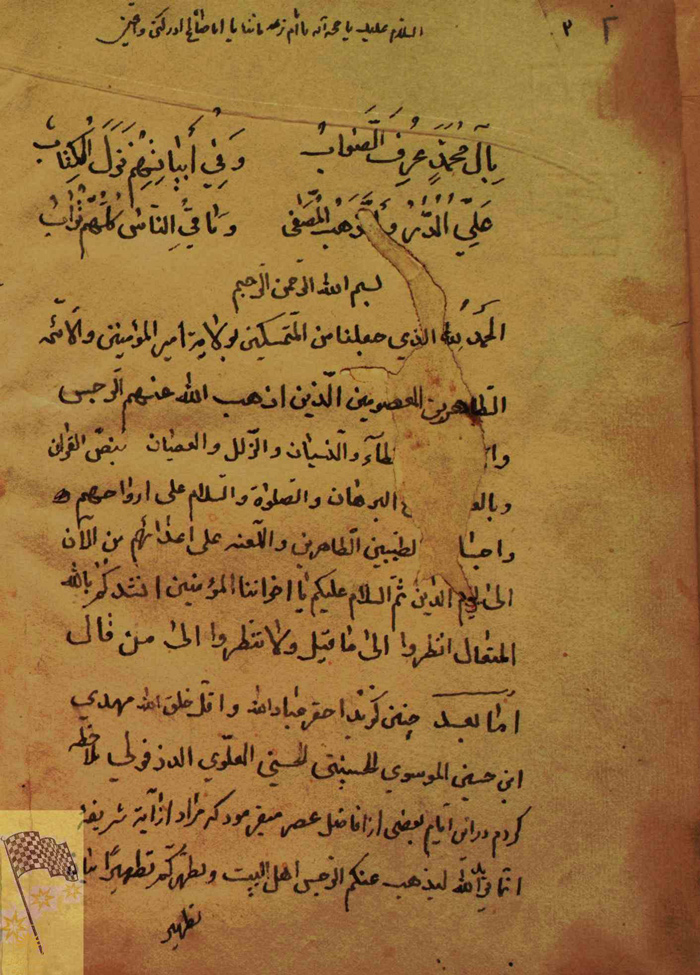 السلام علیک یا حجة الله
٢
٢
بِآلِ مُحَمَّدٍ عُرِفَ الصَّوابُ وَفي أَبْياتِهِمْ نَزَلَ الْكِتابُ
عَلِيُّ الدُّرُّ وَالذَّهَبُ الْمُصَفّى وَباقي النّاسِ كُلُّهُمْ تُرابُ
بسم الله الرحمن الرحيم
الحَمدُ لله الذي جعلنا من المتمسكين بولاية امير المؤمنين والائمّه
الطاهرين المعصومين الذين اذهب الله عنهم الرجس
والنسيان والزلل والعصيان بنصّ القرآن
البرهان والصلوة والسلام على ارواحهم
الطيبين الطاهرين واللعنه على اعدائهم من الآن
الى يوم الدين ثمّ السلام عليكم يا اخواننا المؤمنين انشدكم بالله
المتعال انظروا الى ما قيل ولا تنظروا الى من قال
امّا بعد چنين كويد احقر عباد الله واقل خلق الله مهدي
ابن حسين الموسوي الحسيني العلوي الدزفولي ملاحظه
كردم در اين ايام بعضى از افاضل عصر ميفرمود كه مراد از آية شريفه
انّما يريد الله ليذهب عنكم الرجس اهل البيت ويطهركم تطهيرًا
تطهير